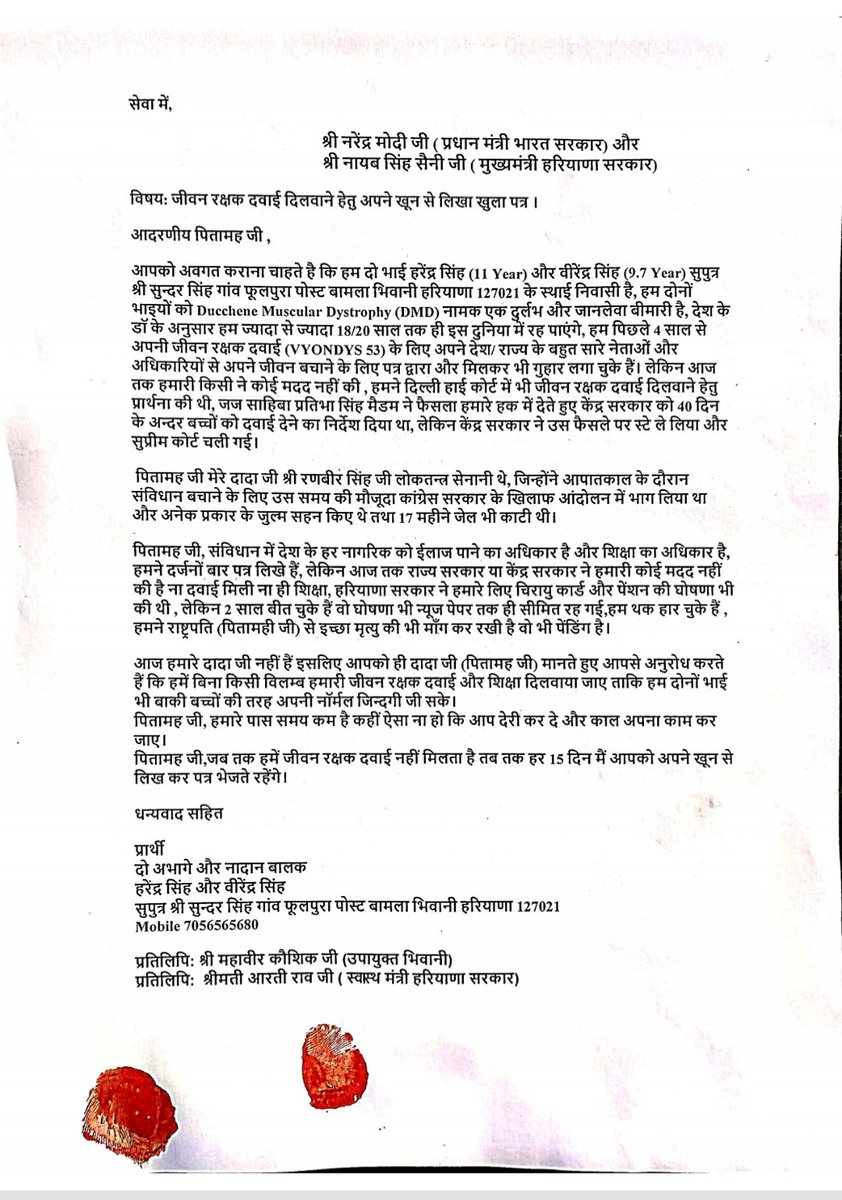 सेवा में,
श्री नरेंद्र मोदी जी ( प्रधान मंत्री भारत सरकार) और
श्री नायब सिंह सैनी जी ( मुख्यमंत्री हरियाणा सरकार)
विषय: जीवन रक्षक दवाई दिलवाने हेतु अपने खून से लिखा खुला पत्र ।
आदरणीय पितामह जी ,
आपको अवगत कराना चाहते है कि हम दो भाई हरेंद्र सिंह (11 Year) और वीरेंद्र सिंह (9.7 Year) सुपुत्र
श्री सुन्दर सिंह गांव फूलपुरा पोस्ट बामला भिवानी हरियाणा 127021 के स्थाई निवासी है, हम दोनों
भाइयों को Ducchene Muscular Dystrophy (DMD) नामक एक दुर्लभ और जानलेवा बीमारी है, देश के
डॉ के अनुसार हम ज्यादा से ज्यादा 18/20 साल तक ही इस दुनिया में रह पाएंगे, हम पिछले 4 साल से
अपनी जीवन रक्षक दवाई (VYONDYS 53) के लिए अपने देश/ राज्य के बहुत सारे नेताओं और
अधिकारियों से अपने जीवन बचाने के लिए पत्र द्वारा और मिलकर भी गुहार लगा चुके हैं। लेकिन आज
तक हमारी किसी ने कोई मदद नहीं की , हमने दिल्ली हाई कोर्ट में भी जीवन रक्षक दवाई दिलवाने हेतु
प्रार्थना की थी, जज साहिबा प्रतिभा सिंह मैडम ने फैसला हमारे हक में देते हुए केंद्र सरकार को 40 दिन
के अन्दर बच्चों को दवाई देने का निर्देश दिया था, लेकिन केंद्र सरकार ने उस फैसले पर स्टे ले लिया और
सुप्रीम कोर्ट चली गई।
पितामह जी मेरे दादा जी श्री रणबीर सिंह जी लोकतन्त्र सेनानी थे, जिन्होंने आपातकाल के दौरान
संविधान बचाने के लिए उस समय की मौजूदा कांग्रेस सरकार के खिलाफ आंदोलन में भाग लिया था
और अनेक प्रकार के जुल्म सहन किए थे तथा 17 महीने जेल भी काटी थी।
पितामह जी, संविधान में देश के हर नागरिक को ईलाज पाने का अधिकार है और शिक्षा का अधिकार है,
हमने दर्जनों बार पत्र लिखे हैं, लेकिन आज तक राज्य सरकार या केंद्र सरकार ने हमारी कोई मदद नहीं
की है ना दवाई मिली ना ही शिक्षा, हरियाणा सरकार ने हमारे लिए चिरायु कार्ड और पेंशन की घोषणा भी
की थी , लेकिन 2 साल बीत चुके हैं वो घोषणा भी न्यूज पेपर तक ही सीमित रह गई,हम थक हार चुके हैं ,
हमने राष्ट्रपति (पितामही जी) से इच्छा मृत्यु की भी माँग कर रखी है वो भी पेंडिंग है।
आज हमारे दादा जी नहीं हैं इसलिए आपको ही दादा जी (पितामह जी) मानते हुए आपसे अनुरोध करते
हैं कि हमें बिना किसी विलम्ब हमारी जीवन रक्षक दवाई और शिक्षा दिलवाया जाए ताकि हम दोनों भाई
भी बाकी बच्चों की तरह अपनी नॉर्मल जिन्दगी जी सके।
पितामह जी, हमारे पास समय कम है कहीं ऐसा ना हो कि आप देरी कर दे और काल अपना काम कर
जाए।
पितामह जी,जब तक हमें जीवन रक्षक दवाई नहीं मिलता है तब तक हर 15 दिन मैं आपको अपने खून से
लिख कर पत्र भेजते रहेंगे।
धन्यवाद सहित
प्रार्थी
दो अभागे और नादान बालक
हरेंद्र सिंह और वीरेंद्र सिंह
सुपुत्र श्री सुन्दर सिंह गांव फूलपुरा पोस्ट बामला भिवानी हरियाणा 127021
Mobile 7056565680
प्रतिलिपि: श्री महावीर कौशिक जी (उपायुक्त भिवानी)
प्रतिलिपि: श्रीमती आरती राव जी ( स्वास्थ मंत्री हरियाणा सरकार)